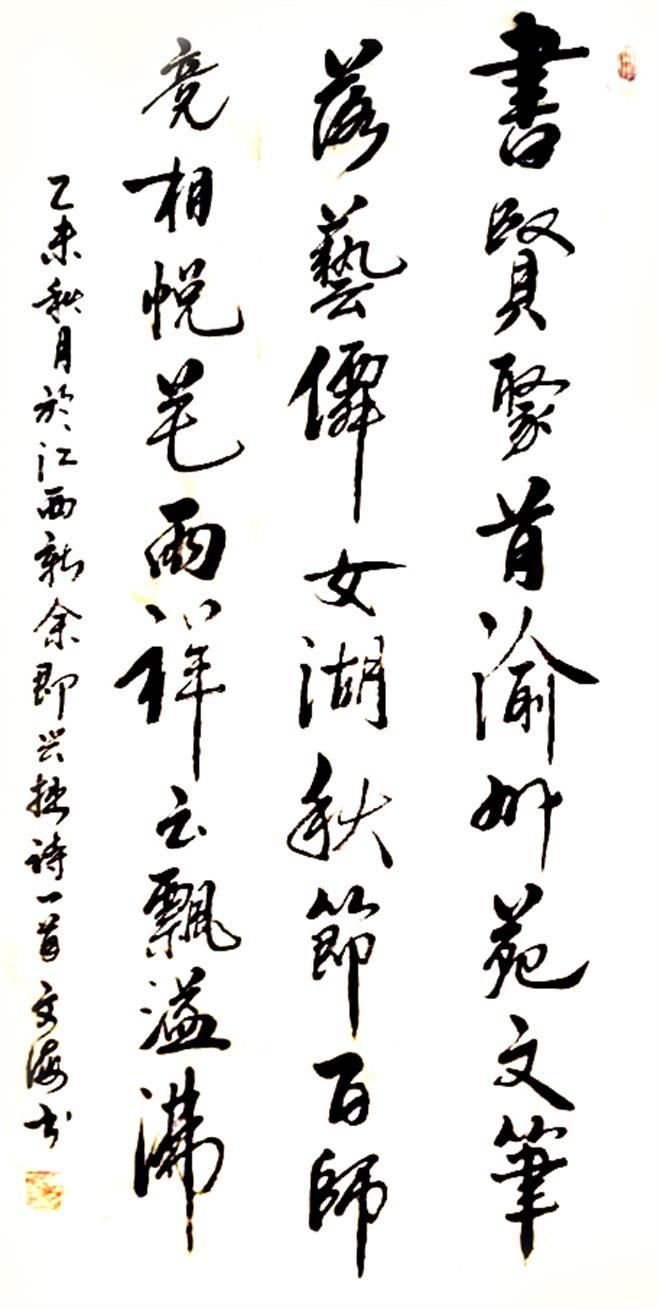 書賢聚首渝州苑文筆
落藝僊女湖秋節百師
亮相悦雨祥云飄溢
乙未秋月於江西新余即兴拙诗一首 文海书